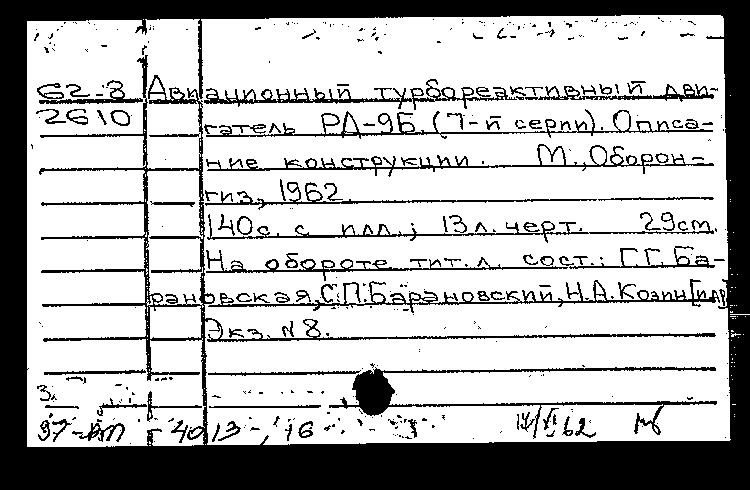 62-8 Авиационный турбореактивный дви-
2610 гатель РД-9Б. (7-й серии). Описа-
ние конструкции. М., Оборон-
гиз, 1962.
140с. с илл.; 13л. черт. 29см.
На обороте тит.л. сост.: Г.Г. Ба-
рановская, С.П. Барановский, Н.А. Козин [и др]
Экз. N 8.
3.
37- - 4013 - 16 62